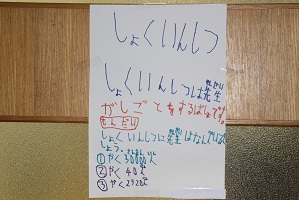 しょくいんしつ
しょくいんしつは先生
がしごとをするばしょです。
もんだい
しょくいんしつに先生はなんにんいるで
しょう。
① やく30000人
② やく40人
③ やく2920人